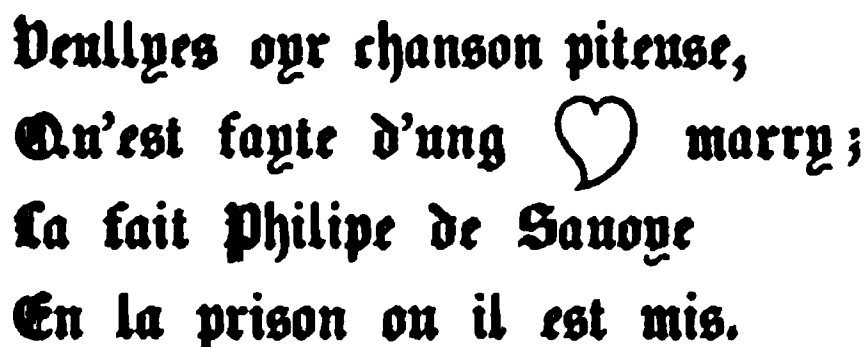 Veullyes oyr chanson piteuse,
Qu'est fayte d'ung marry;
La fait Philipe de Sauoye
En la prison ou il est mis.